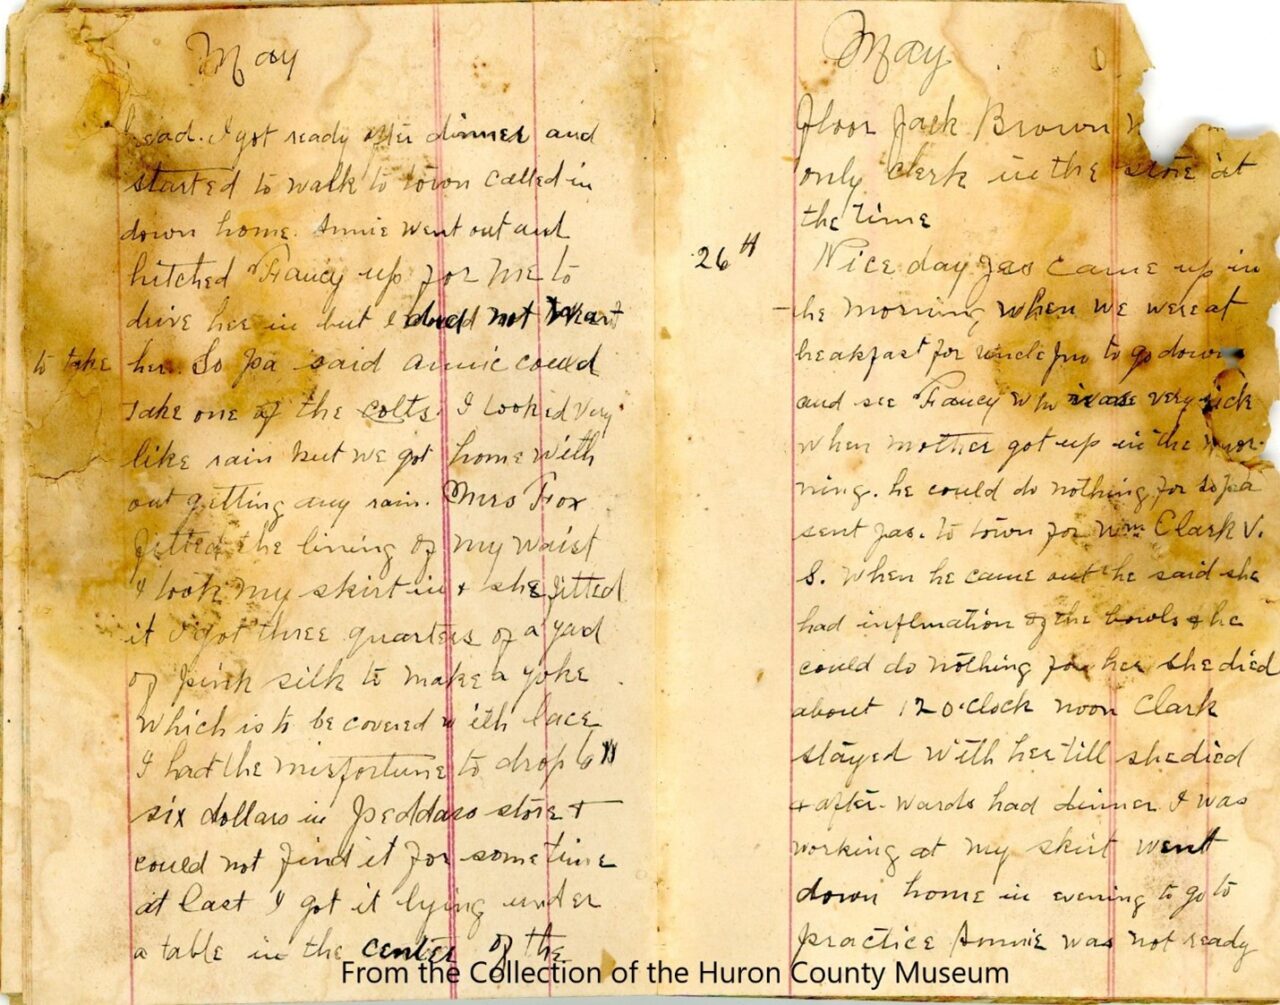 May
sad. I got ready after dinner and
started to walk to town called in
down home. Annie went out and
hitched Fancy up for me to
drive her in but I did not want
to take her. So Pa said Annie could
take one of the colts. I looked very
like rain but we got home with
out getting any rain. Mrs Fox
fitted the lining of my waist
I took my skirt in + she fitted
it I got three quarters of a yard
of pink silk to make a yoke
which is to be covered with lace
I had the misfortune to drop
six dollars in store +
could not find it for some time
at last I got it lying under
a table in the center of the
May
floor Jack Brown
only clerk in the store at
the time
26th Nice day Jas came up in
he morning when we were at
breakfast for Uncle Jno to go down
and see Fancy who was very sick
when mother got up in the mor-
ning. he could do nothing for so pa
sent Jas. to town for Wm Clark V.
S. when he came out he said she
had inflmation of the bowls & he
could do nothing for her she died
about 12 o'clock noon Clark
stayed with her till she died
+ after-wards had dinner. I was
working at my skirt went
down home in evening to go to
practice Annie was not ready
From the Collection of the Huron County Museum